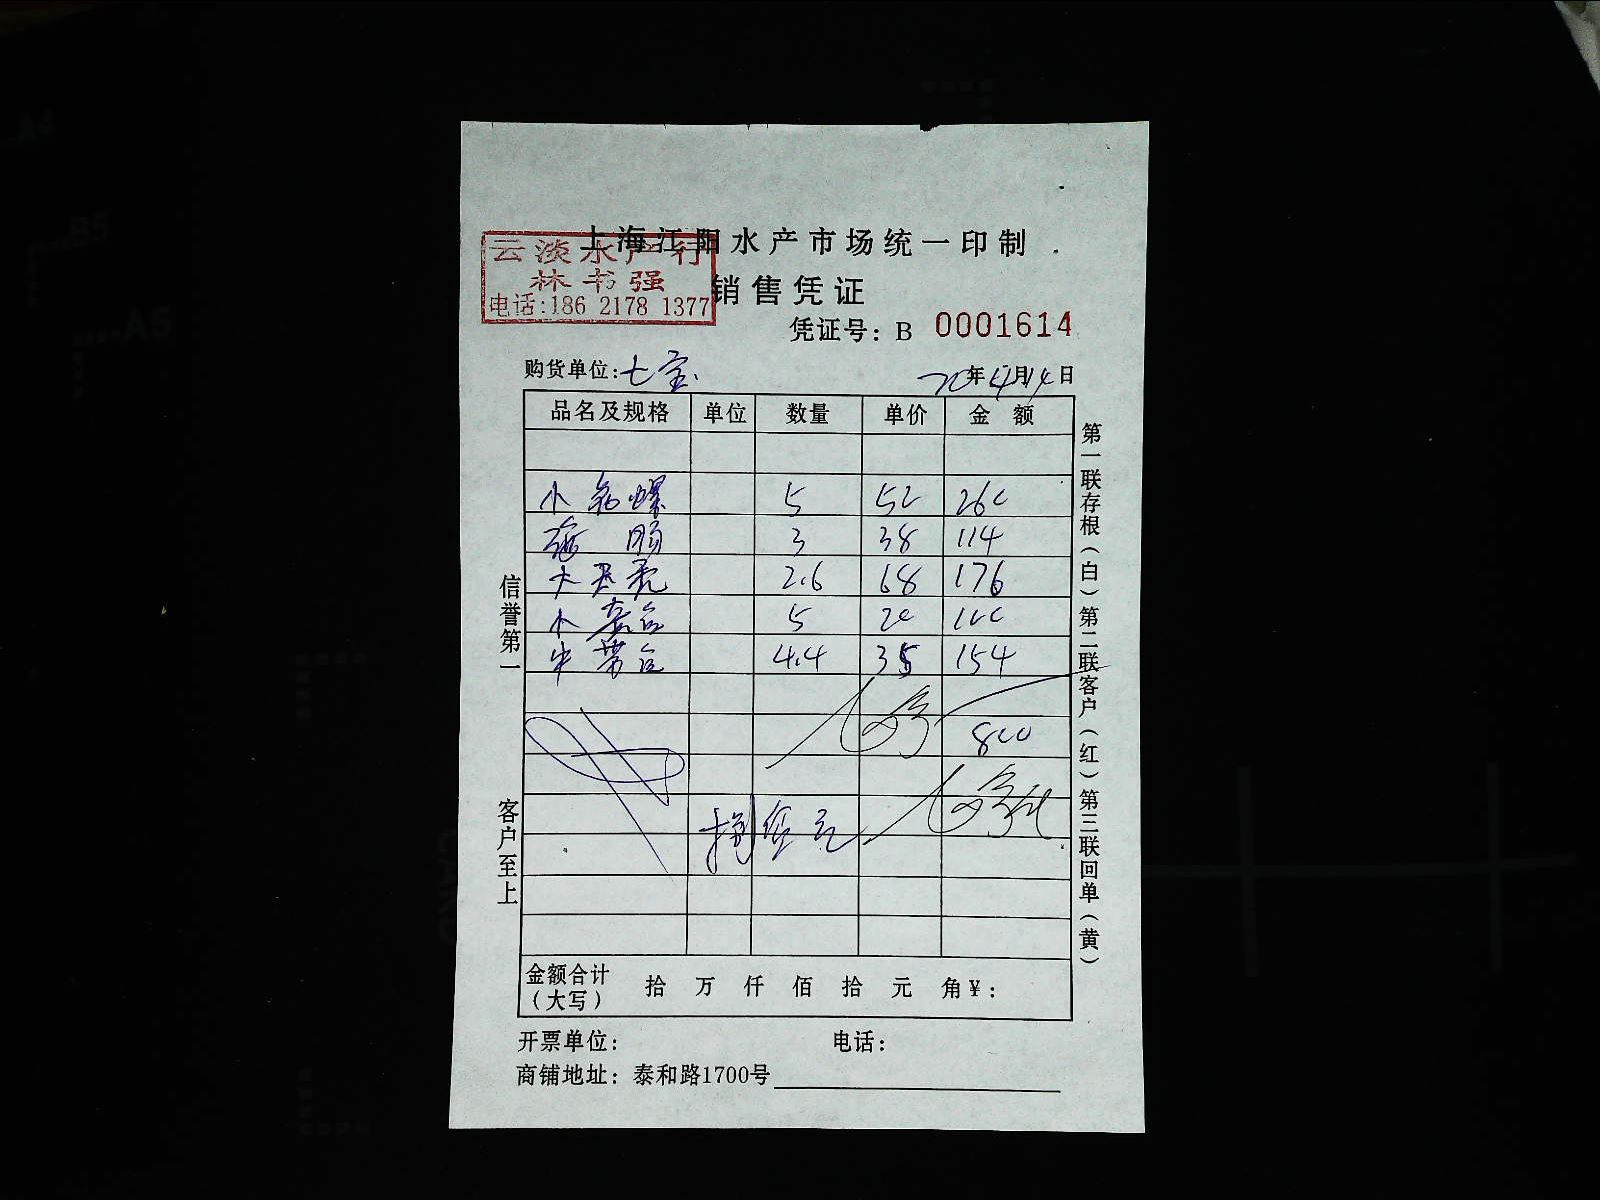 上海江阳水产市场统一印制
云淡水产行
林书强
电话:186 2178 1377
销售凭证
凭证号: B 0001614
购货单位: 七宝 20年4月14日
品名及规格 单位 数量 单价 金额
小 螺 5 52 260
3 38 114
2.6 68 176
小 5 20 100
4.4 35 154
800
金额合计(大写) 拾 万 仟 佰 拾 元 角 ¥:
开票单位: 电话:
商铺地址: 泰和路1700号
信誉第一
客户至上
第一联存根(白)第二联客户(红)第三联回单(黄)